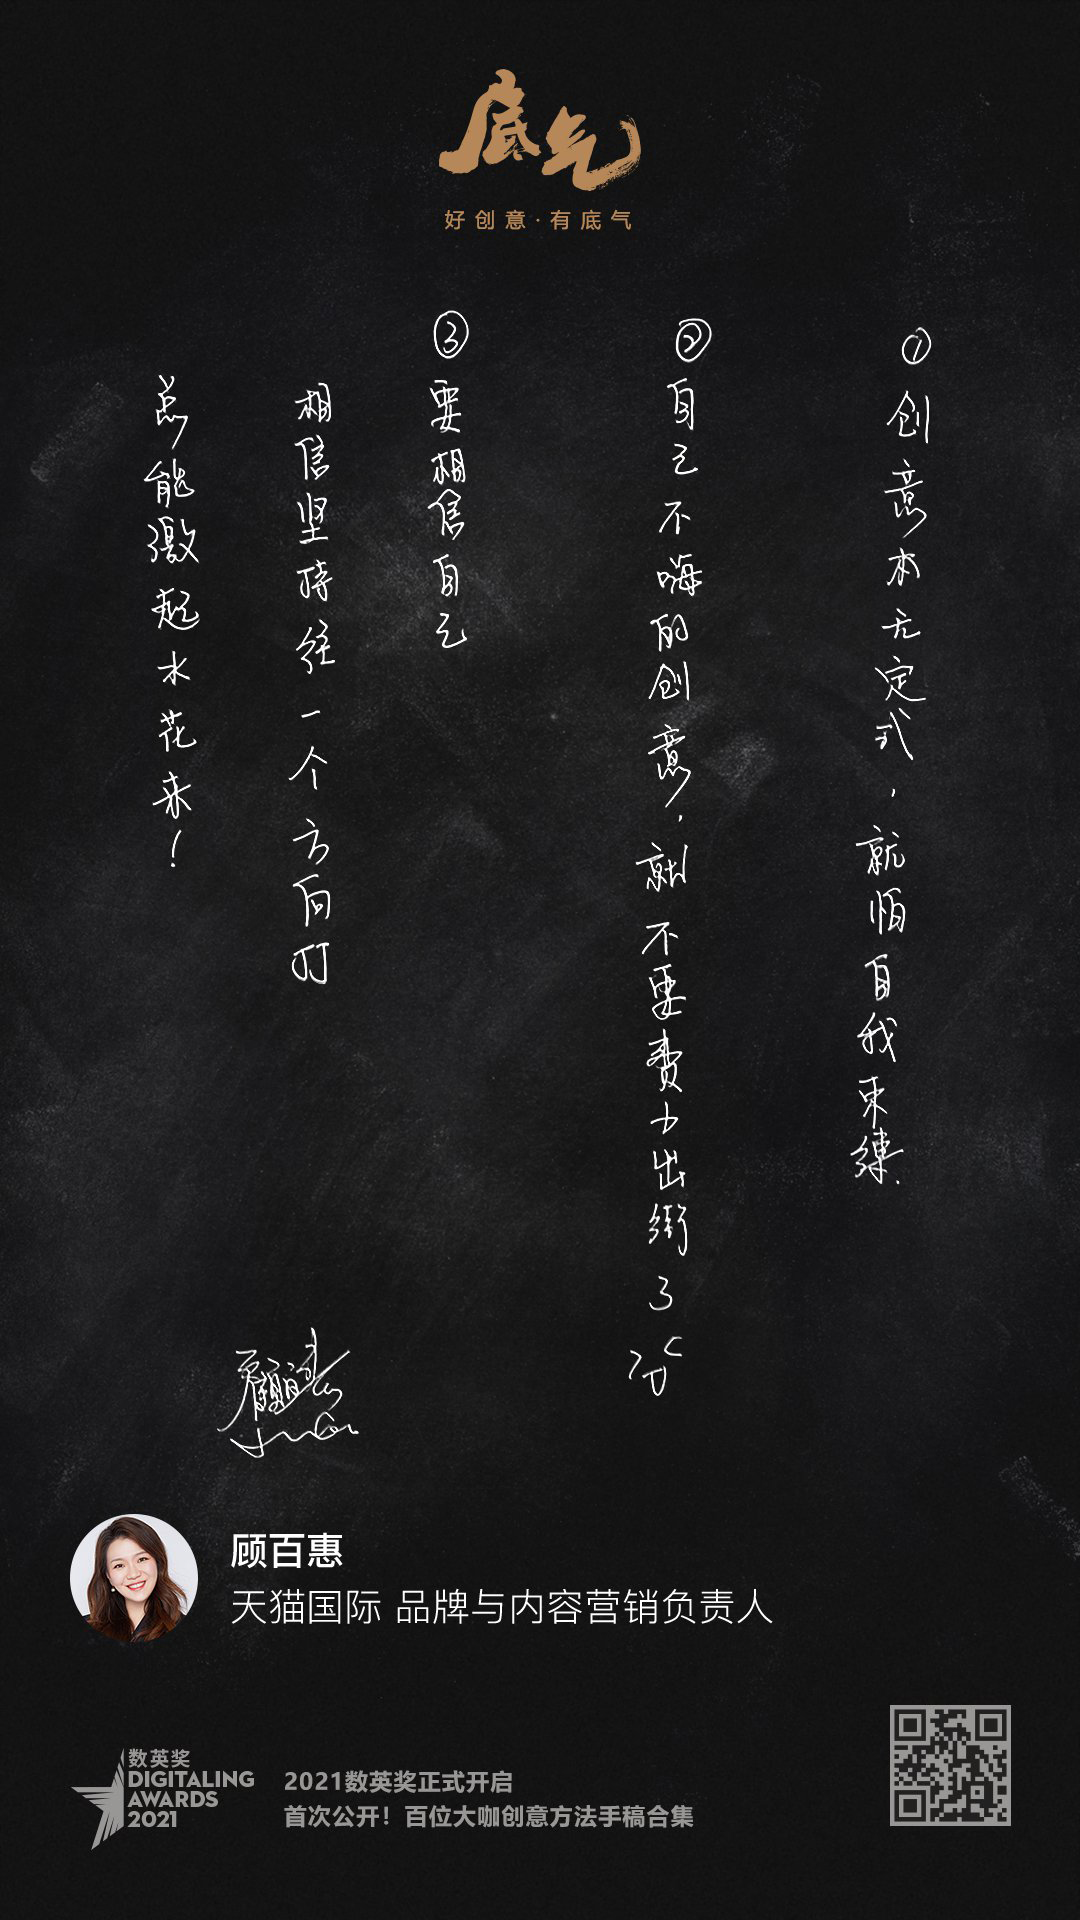 底气
好创意·有底气
① 创意本无定式,就怕自我束缚.
② 自己不嗨的创意,就不要费力出街了
③ 要相信自己
相信坚持往一个方向打
总能激起水花来!
顾百惠
顾百惠
天猫国际 品牌与内容营销负责人
数英奖
DIGITALING
AWARDS
2021
2021数英奖正式开启
首次公开!百位大咖创意方法手稿合集